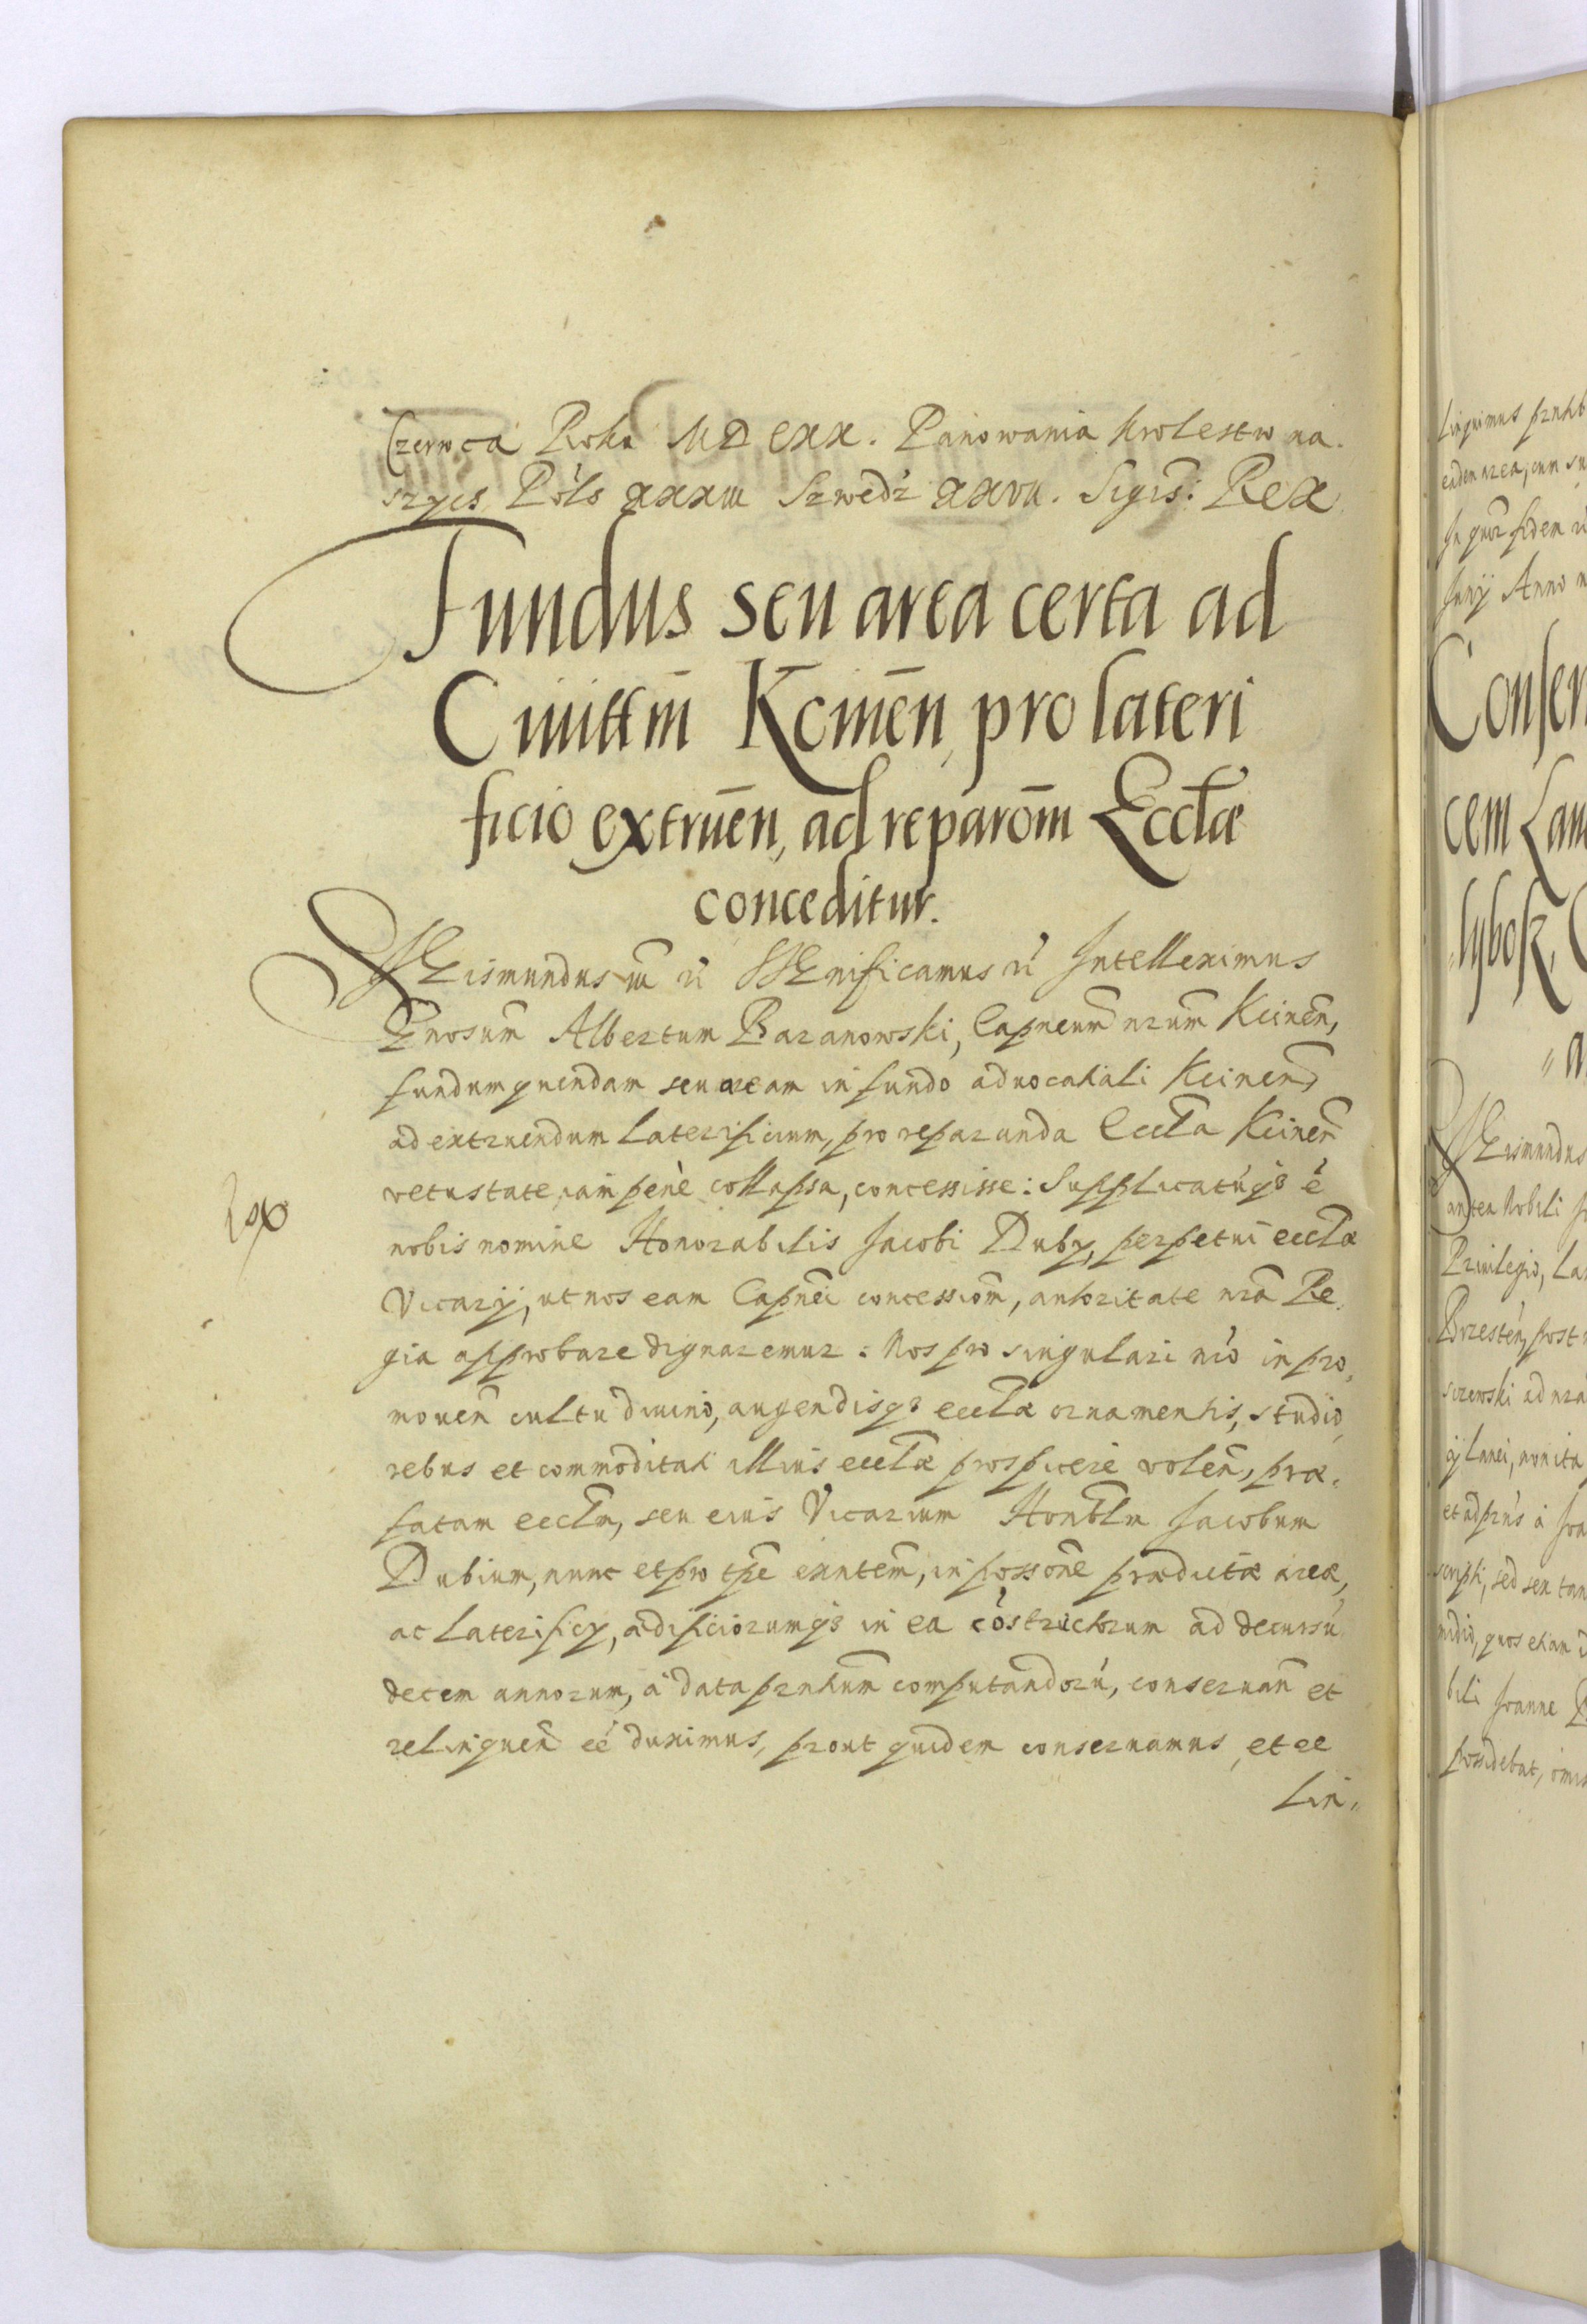 Czerwca Roku MDCXX. Panowania Krolestw na.
szych Pols XXXIII Szwedz XXVII. Sigis: Rex
Fundus seu area certa ad
Ciuittm̄ Kcinēn, pro lateri
ficio extruēn, ad reparōm Ecctæ
conceditur.
Sigismundus iii ri Significamus ri Intelleximus
Gnosum Albertum Baranowski, Capneum nrum Kcinen,
fundum quendam seu aream in fundo aduocatiali Kcinen,
ad extruendum laterificium, pro reparanda Eccta Kcinen
vetustate iam penè collapsa, concessisse: Supplicatúqz é
nobis nomine Honorabilis Jacobi Duby, perpetui ecctæ
Vicarij, ut nos eam Capnei concessiom, autoritate nra Re,
gia approbare dignaremur: Nos pro singulari nro in pro,
mouen cultu diuino, augendisqz ecctæ ornamentis, studio,
rebus et commoditati illius ecctæ prospicere volen, præ,
fatam ecctm, seu eius Vicarium Honbtm Jacobum
Dubium, nunc et pro tpe exntem, in possone prædictæ areæ,
ac laterificij, ædificiorumqz in ea cóstructorum ad decursú
decem annorum, à data prntium computandorú, conseruan et
relinquen eé duximus, prout quidem conseruamus et re
lin,
linquimus prntib
eadem area, cum su
In quor fidem ri
Junij Anno
Conser
cem Lan
lybok,
Sigismundus
antea Nobili
Priuilegio, La
Brzesten, post
sczewski ad nra
ij lanei, non ita
et adprns à Joa
scripti, sed seu tan
bili Joanne
possidebat, omis